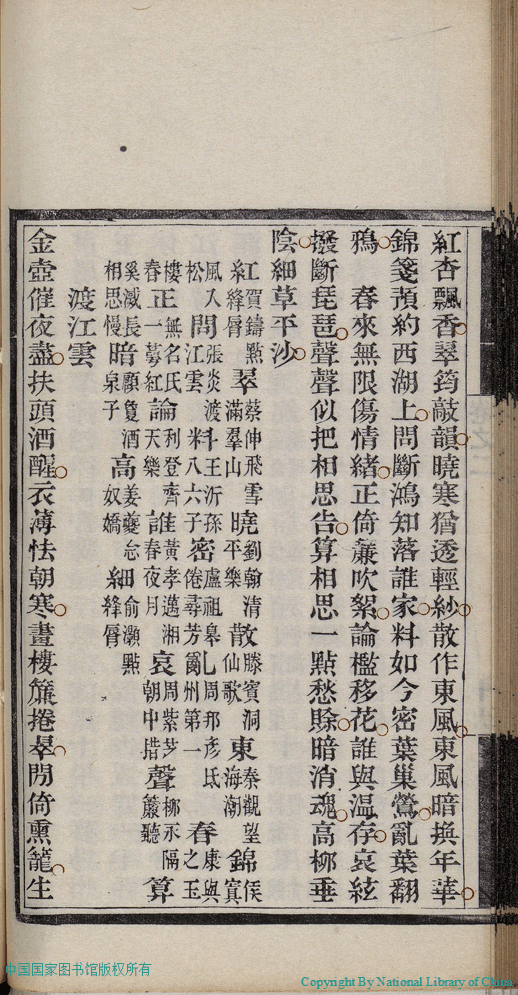 紅杏飄香翠筠敲韻曉寒猶透輕紗散作東風東風暗換年華
錦箋預約西湖上問斷鴻知落誰家料如今密葉巢鶯亂葉翻
鴉　春來無限傷情緒正倚簾吹絮論檻移花誰與温存哀絃
撥斷琵琶聲聲似把相思告算相思一點愁賒暗消魂高柳垂
陰細草平沙
紅賀鑄點絳脣翠蔡伸飛雪滿羣山曉劉翰清平樂散滕賓洞仙歌東秦觀望海潮錦侯寘
風入松問張炎渡江雲斗王沂孫八六子密盧祖皋倦尋芳亂周邦彥氐州第一春康與之玉
樓春正無名氏一萼紅論利登齊天樂誰黃孝邁湘春夜月哀周紫芝朝中措聲柳永隔蕭聽算
奚㴒長相思慢暗顧敻酒泉子高姜夔念奴嬌細俞灝點絳脣
渡江雲
金壺催夜盡扶頭酒醒衣薄怯朝寒畫樓簾捲翠閒倚熏籠生
中国国家图书馆版权所有
Copyright By National Library of China.